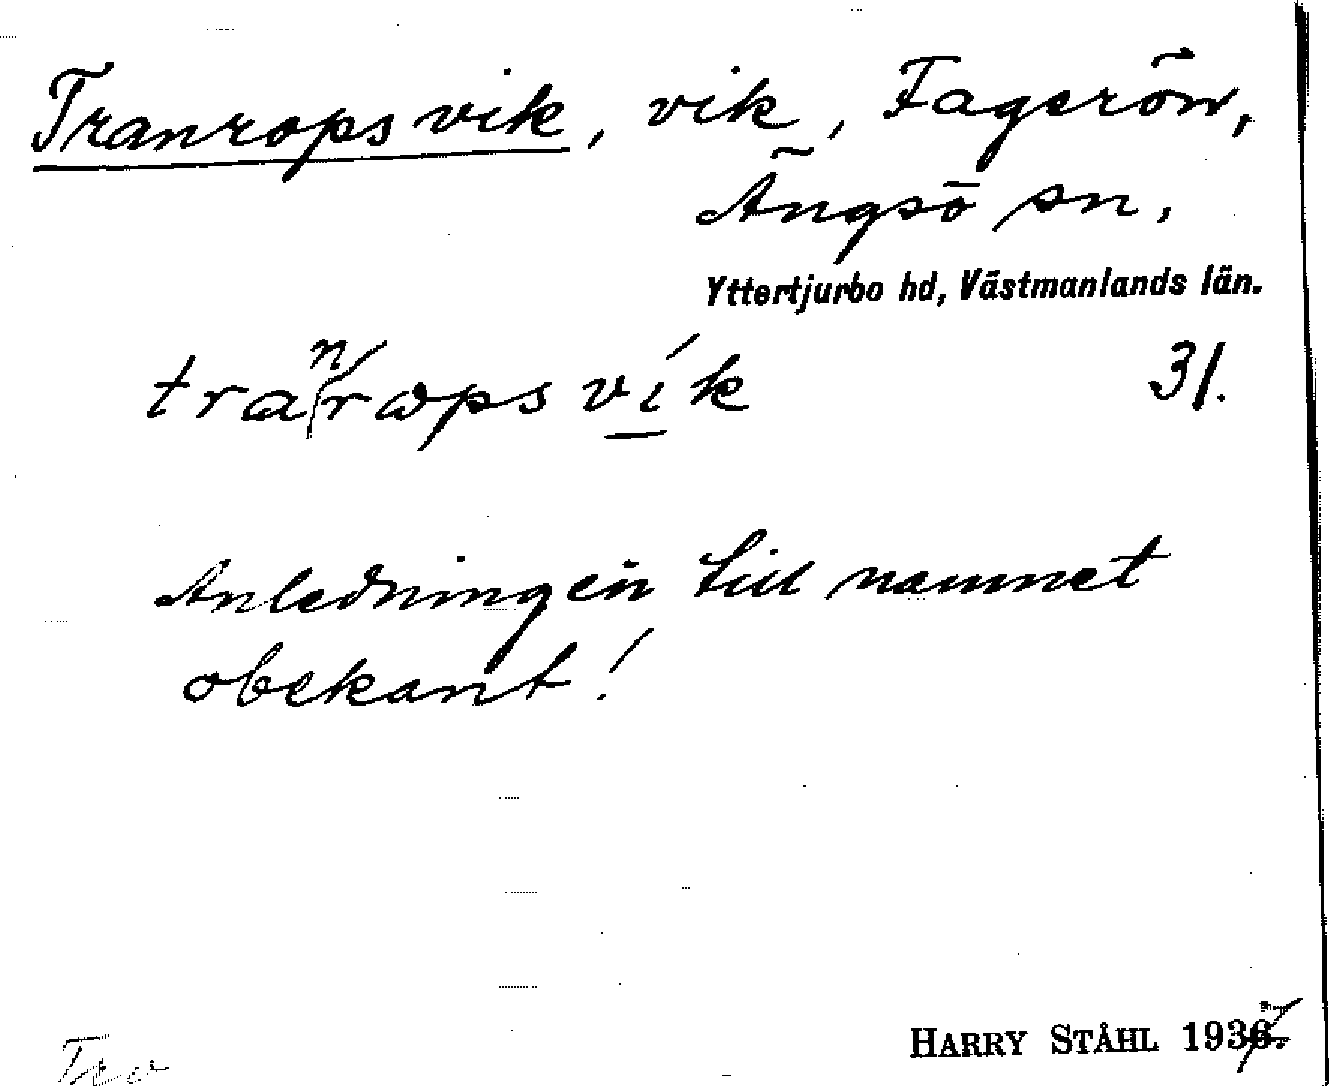 Tranropsvik, vik, Fagerön,
Ängsö sn,
Yttertjurbo hd, Västmanlands län.
tranrωpsvík 31.
Anledningen till namnet
obekant!
HARRY STÅHL 1937